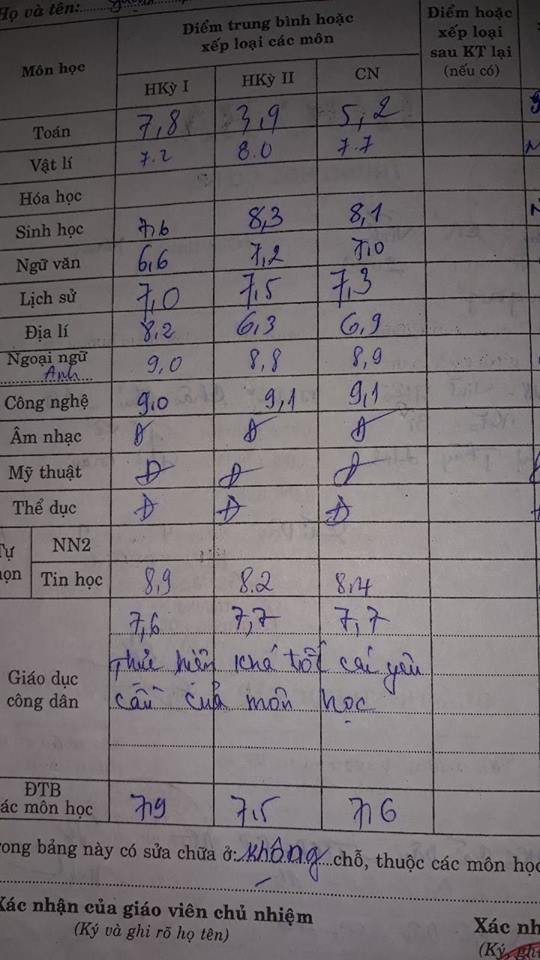 Họ và tên:
Môn học
Điểm trung bình hoặc
xếp loại các môn
Điểm hoặc
xếp loại
sau KT lại
(nếu có)
HKỳ I HKỳ II CN
Toán 7,8 3,9 5,2
Vật lí 7.2 8.0 7.7
Hóa học
Sinh học 7,6 8,3 8,1
Ngữ văn 6,6 7,2 7,0
Lịch sử 7,0 7,5 7,3
Địa lí 8,2 6,3 6,9
Ngoại ngữ 9,0 8,8 8,9
Anh
Công nghệ 9,0 9,1 9,1
Âm nhạc Đ Đ Đ
Mỹ thuật Đ Đ Đ
Thể dục Đ Đ Đ
Tự
họn
NN2
Tin học 8,9 8.2 8,4
7,6 7,7 7,7
Giáo dục
công dân
Thực hiện khá tốt cái yêu
cầu của môn học
ĐTB
các môn học 7,9 7,5 7,6
rong bảng này có sửa chữa ở: không chỗ, thuộc các môn học
Xác nhận của giáo viên chủ nhiệm
(Ký và ghi rõ họ tên)
Xác nh
(Ký, ghi